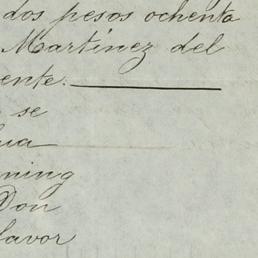 dos pesos ochenta
Martínez del
ente.
se
ua
ning
Don
favor